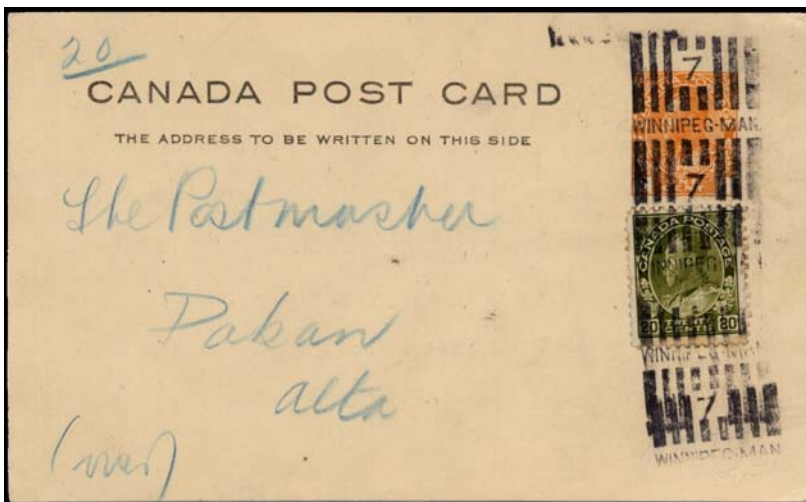 20
CANADA POST CARD
THE ADDRESS TO BE WRITTEN ON THIS SIDE
The Postmaster
Pakan
Alta
(over)
7
WINNIPEG-MAN.
7
CANADA POSTAGE
NNIPEG
20 TWENTY 20
WINNIPEG-MAN
7
WINNIPEG-MAN